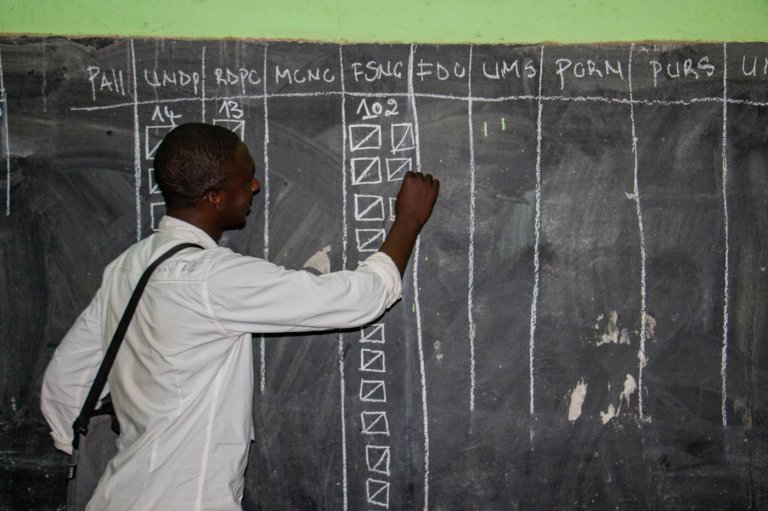 PAll UNDP RDPC MCNC FSNC FDC UMS PCRN PURS U
14 13 102